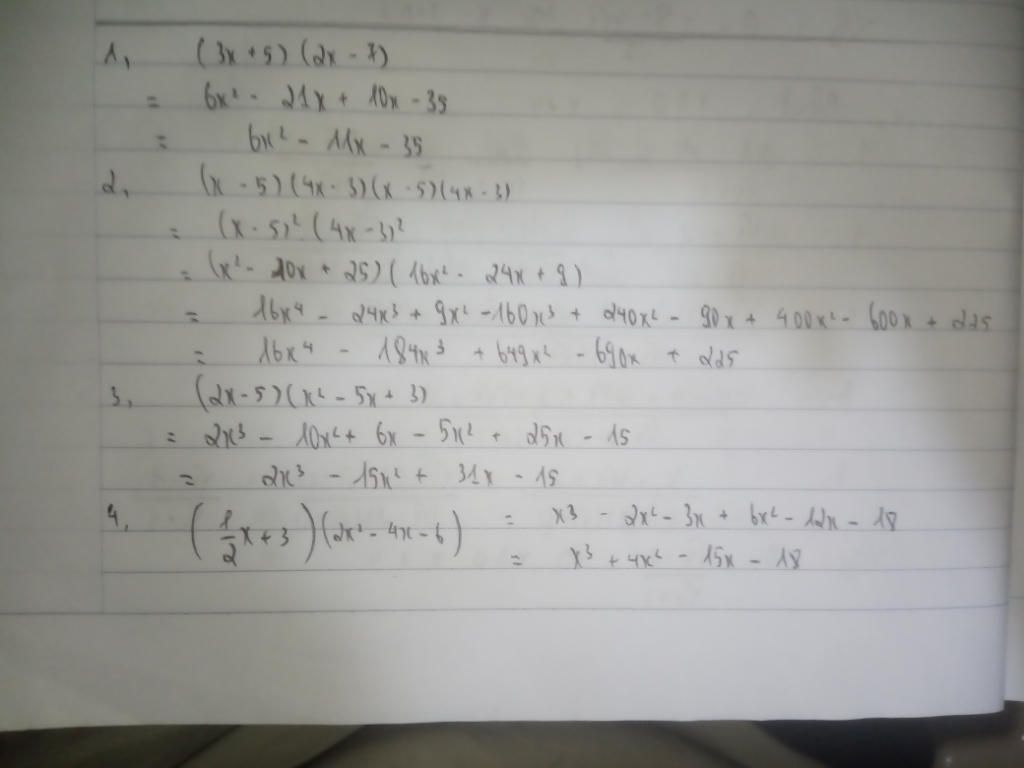 1, (3x + 5) (2x - 7)
= 6x² - 21x + 10x - 35
= 6x² - 11x - 35
2, (x - 5) (4x - 3) (x - 5) (4x - 3)
= (x - 5)² (4x - 3)²
= (x² - 10x + 25) (16x² - 24x + 9)
= 16x⁴ - 24x³ + 9x² - 160x³ + 240x² - 90x + 400x² - 600x + 225
= 16x⁴ - 184x³ + 649x² - 690x + 225
3, (2x - 5) (x² - 5x + 3)
= 2x³ - 10x² + 6x - 5x² + 25x - 15
= 2x³ - 15x² + 31x - 15
4, (1/2 x + 3) (2x² - 4x - 6) = x³ - 2x² - 3x + 6x² - 12x - 18
= x³ + 4x² - 15x - 18